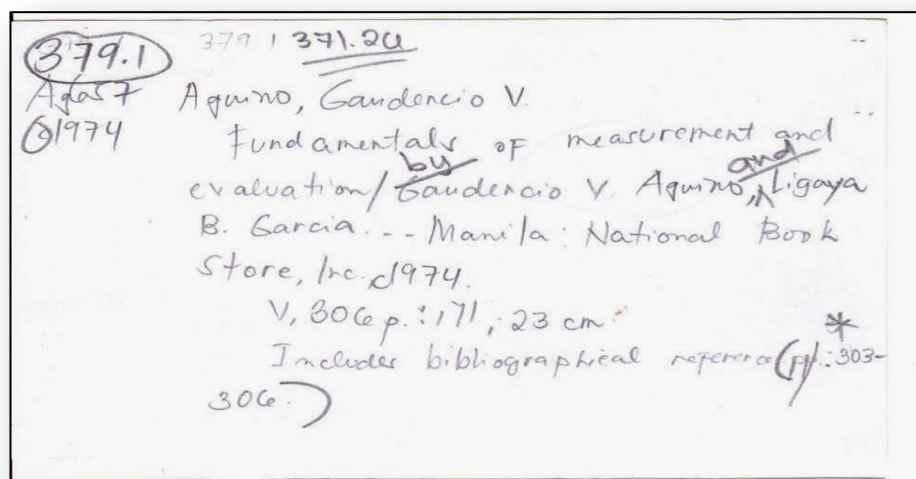 379.1 379.1 371.26
Aqui57 Aquino, Gaudencio V.
c1974 Fundamentals of measurement and
by and
evaluation/ Gaudencio V. Aquino, Ligaya
B. Garcia. -- Manila: National Book
Store, Inc. c1974.
V, 306 p. : ill, 23 cm.
Includes bibliographical reference (pp.: 303-
306.)
*